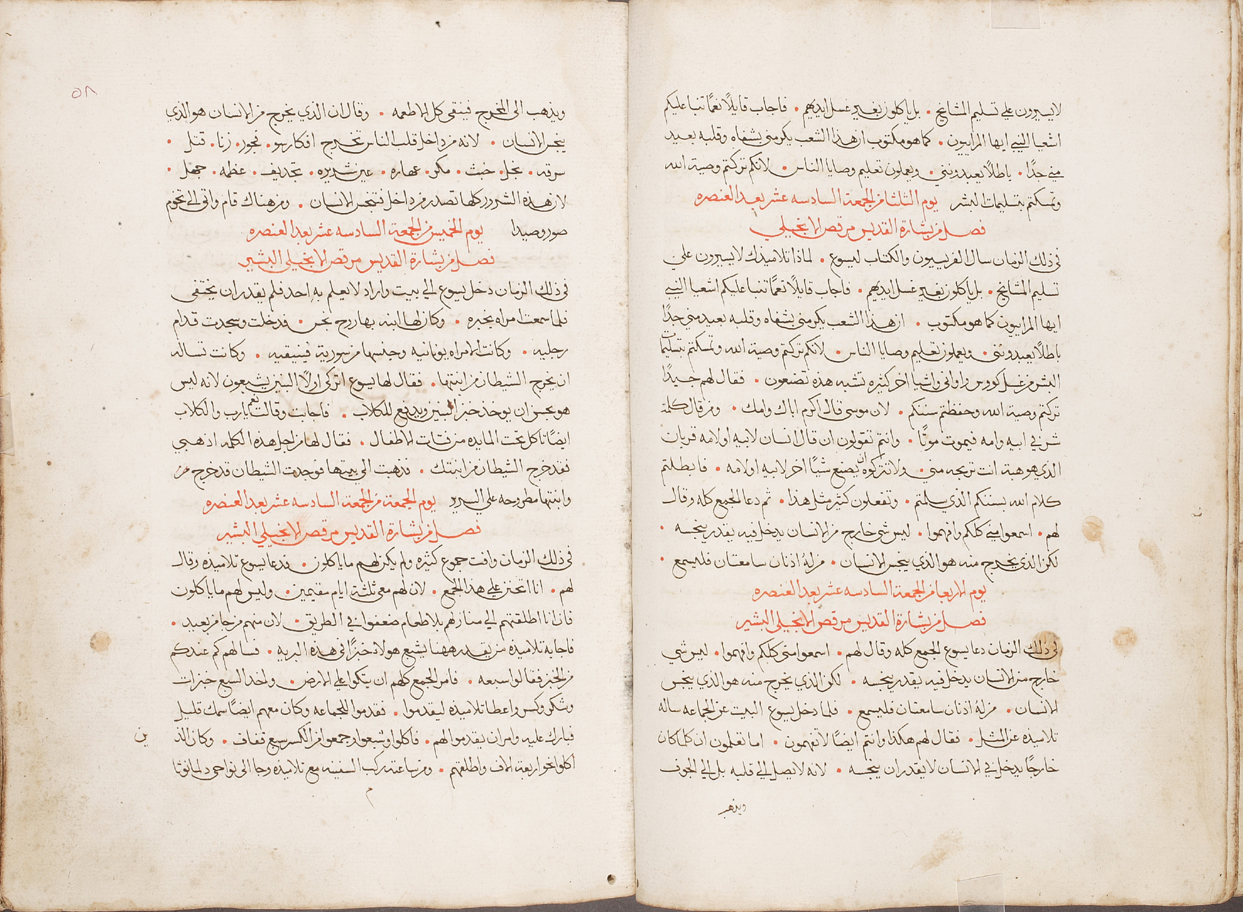 لايسيرون علي تسليم المشايخ • بل ياكلون بغير غسل ايديهم • فاجاب قايلاً نعمًا تنبا عليكم
اشعيا النبي ايها المرايون • كما هو مكتوب ان هذا الشعب يكرمني بشفاه وقلبه بعيد
مني جدًا • باطلاً يعبدونني • ويعملون تعليم وصايا الناس • لانكم تركتم وصية الله
وتمسكتم بتسليمات البشر يوم الثلثا من الجمعة السادسه عشر بعد العنصره
فصل من بشارة القديس مرقص الانجيلي
في ذلك الزمان سال الفريسيون والكتاب ليسوع • لماذا تلاميذك لايسيرون علي
تسليم المشايخ • بل ياكلون بغير غسل ايديهم • فاجاب قايلاً نعمًا تنبا عليكم اشعيا النبي
ايها المرايون كما هو مكتوب • ان هذا الشعب يكرمني بشفاه وقلبه بعيد مني جدًا
باطلاً يعبدونني • ويعملون تعليم وصايا الناس • لانكم تركتم وصية الله وتمسكتم بتسليم
البشر من غسل كووس واواني واشيا اخر كثيره تشبه هذه تصنعون • فقال لهم جيدًا
تركتم وصية الله وحفظتم سنتكم • لان موسي قال اكرم اباك وامك • ومن قال كلمة
شر في ابيه وامه فيموت موتًا • وانتم تقولون ان قال انسان لابيه او لامه قربان
الذي هو هبة انت تربحه مني • ولا تتركوه ان يصنع شيًا اخر لابيه او لامه • فابطلتم
كلام الله بسنتكم الذي سلمتم • وتفعلون كثير مثل هذا • ثم دعا الجمع كله وقال
لهم • اسمعوا مني كلكم وافهموا • ليس شي خارج من الانسان يدخل فيه يقدر ينجسه •
لكن الذي يخرج منه هو الذي ينجس الانسان • من له اذنان سامعتان فليسمع •
يوم الاربعا من الجمعة السادسه عشر بعد العنصره
فصل من بشارة القديس مرقص الانجيلي البشير
في ذلك الزمان دعا يسوع الجمع كله وقال لهم • اسمعوا مني كلكم وافهموا • ليس شي
خارج من الانسان يدخل فيه يقدر ينجسه • لكن الذي يخرج منه هو الذي ينجس
الانسان • من له اذنان سامعتان فليسمع • فلما دخل يسوع البيت عن الجماعه ساله
تلاميذه عن المثل • فقال لهم هكذا وانتم ايضًا لا تفهمون • اما تعلمون ان كلما كان
خارجًا يدخل في الانسان لا يقدر ان ينجسه • لانه لا يصل الي قلبه بل الي الجوف
ويذهب
٥٨
ويذهب الي المخرج فينقي كل الاطعمه • وقال ان الذي يخرج من الانسان هو الذي
ينجس الانسان • لانه من داخل قلب الناس تخرج افكار سو • فجور • زنا • قتل •
سرقه • بخل • خبث • مكر • عهاره • عين شريره • تجديف • عظمه • جهل •
لان هذه الشرور كلها تصدر من داخل وتنجس الانسان • ومن هناك قام واتي الي تخوم
صور وصيدا يوم الخميس من الجمعة السادسه عشر بعد العنصره
فصل من بشارة القديس مرقص الانجيلي البشير
في ذلك الزمان دخل يسوع الي بيت واراد لا يعلم به احد فلم يقدر ان يختفي
فلما سمعت امراه بخبره • وكان لها ابنه بها روح نجس • فدخلت وسجدت قدام
رجليه • وكانت الامراه يونانيه وجنسها من سورية فينيقيه • وكانت تساله
ان يخرج الشيطان من ابنتها • فقال لها يسوع اتركي اولاً البنين يشبعون لانه ليس
هو بحسن ان يوخذ خبز البنين ويدفع للكلاب • فاجابت وقالت نعم يا رب والكلاب
ايضًا تاكل تحت المايده من فتات الاطفال • فقال لها من اجل هذه الكلمه اذهبي
فقد خرج الشيطان من ابنتك • فذهبت الي بيتها فوجدت الشيطان قد خرج من
وابنتها مطروحه علي السرير يوم الجمعة من الجمعة السادسه عشر بعد العنصره
فصل من بشارة القديس مرقص الانجيلي البشير
في ذلك الزمان وافت جموع كثيره ولم يكن لهم ما ياكلون • فدعا يسوع تلاميذه وقال
لهم • انا اتحنن علي هذا الجمع • لان لهم معي ثلثة ايام مقيمين • وليس لهم ما ياكلون
فان انا اطلقتهم الي منازلهم بلا طعام ضعفوا في الطريق • لان منهم من جا من بعيد •
فاجابه تلاميذه من يقدر ههنا يشبع هولا خبزًا في هذه البريه • فسالهم كم عندكم
من الخبز فقالوا سبعه • فامر الجمع كلهم ان يتكوا علي الارض • واخذ السبع خبزات
وشكر وكسر واعطا تلاميذه ليقدموا • فقدموا للجماعه وكان معهم ايضًا سمك قليل
فبارك عليه وامر ان يقدموا لهم • فاكلوا وشبعوا وجمعوا من الكسر سبع قفاف • وكان الذ
ين
اكلوا نحو اربعة الاف واطلقهم • ومن ساعته ركب السفينه مع تلاميذه وجا الي نواحي دلمانوثا